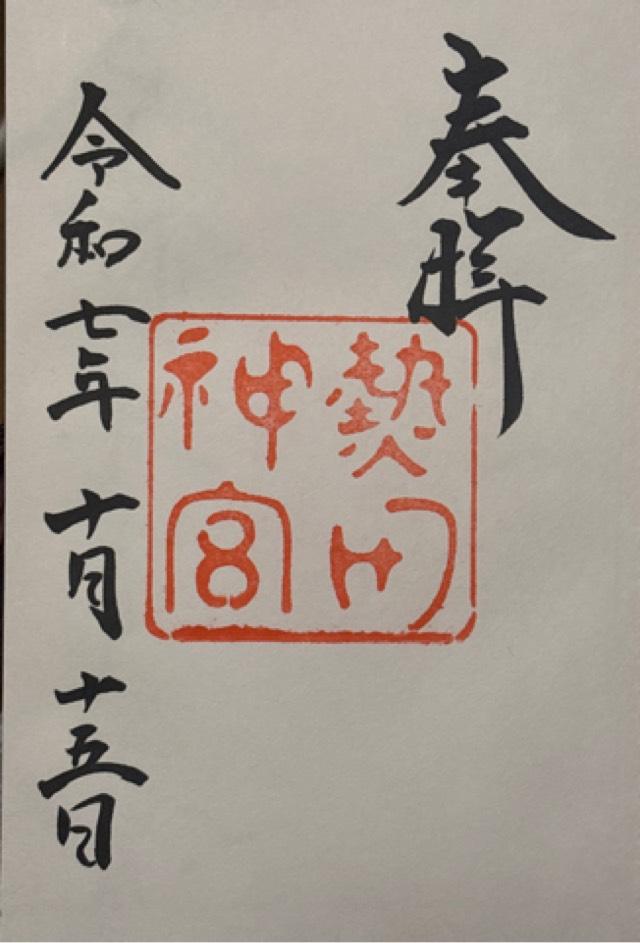 奉拝
熱田
神宮
令和七年十月十五日